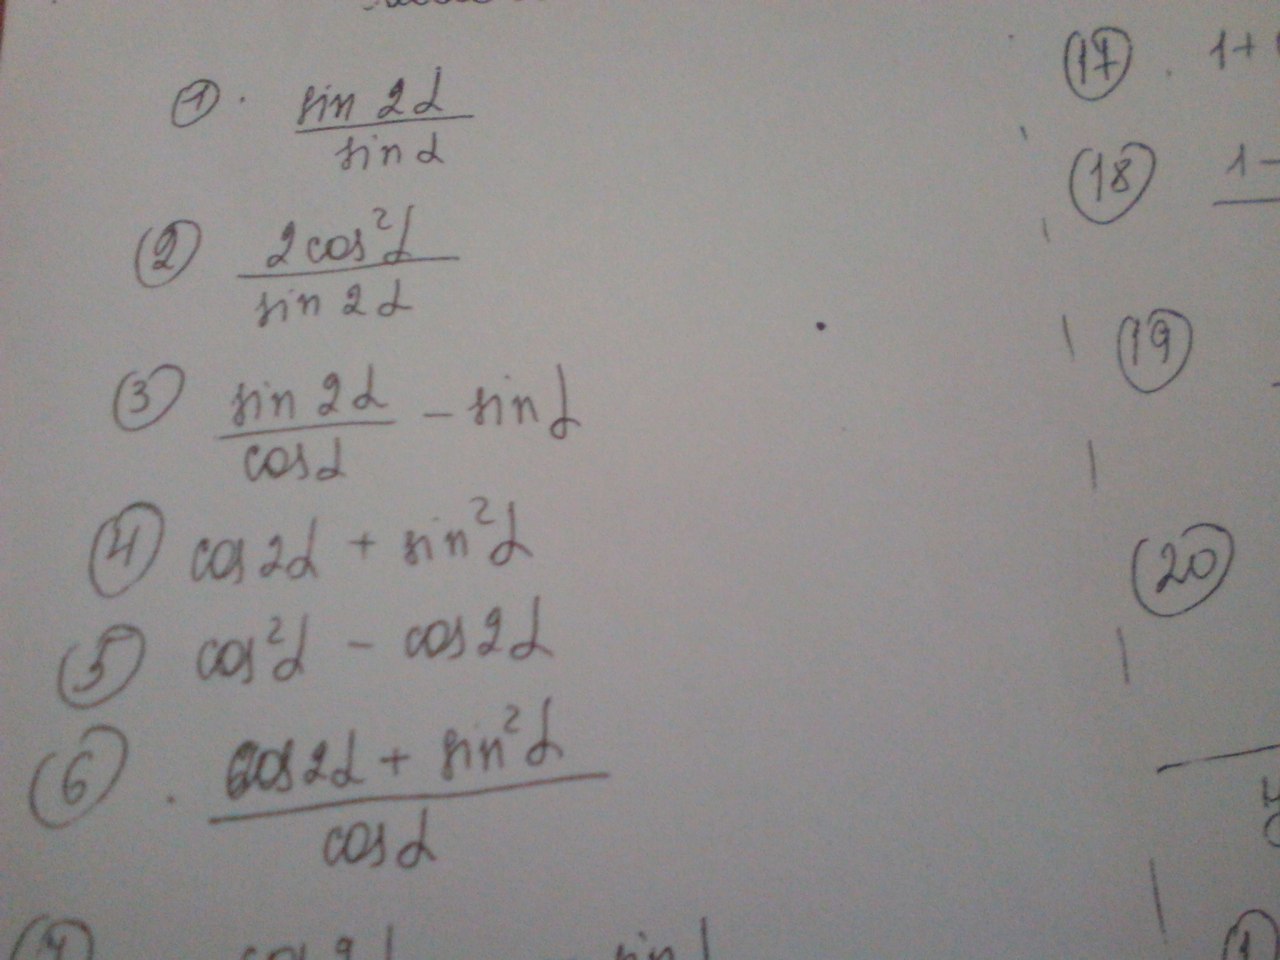 1. sin 2α
sin α
2 2cos²α
sin 2α
3 sin 2α − sin α
cos α
4 cos 2α + sin²α
5 cos²α − cos 2α
6. cos 2α + sin²α
cos α
17. 1+
18 1−
19
20